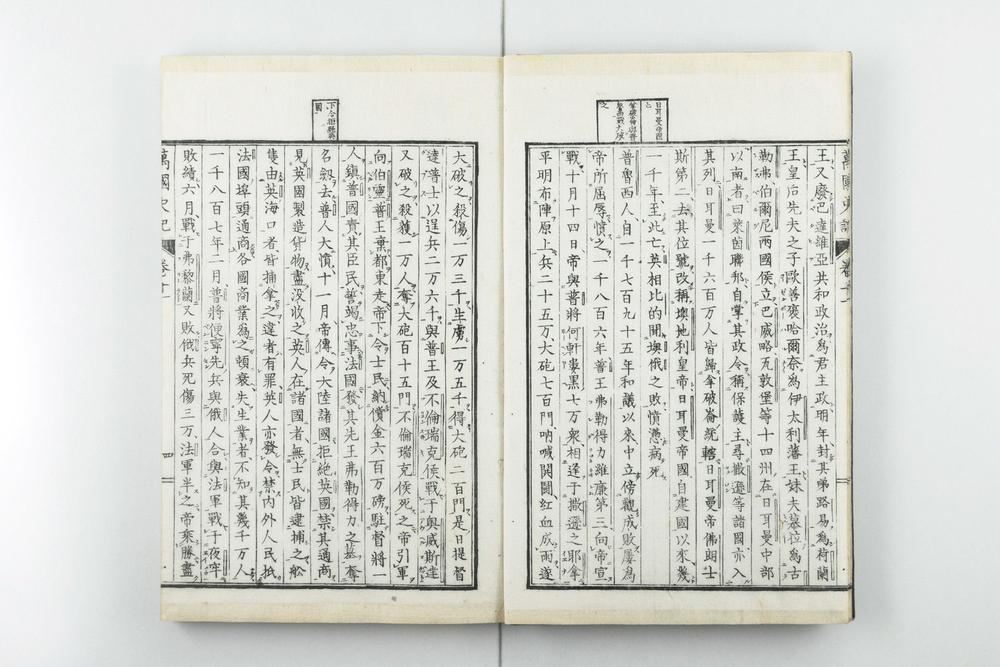 萬國史記 卷十一
日耳曼帝國
亡
王又廢巴達維亞共和政治爲君主政明年封其弟路易爲荷蘭
王皇后先夫之子歐善褒哈爾奈爲伊太利藩王妹夫慕拉爲古
勒弗伯爾尼兩國侯立巴威略瓦敦堡等十四州在日耳曼中部
以南者曰萊茵聯邦自掌其政令稱保護主尋撒遜等諸國亦入
其列日耳曼一千六百万人皆歸拿破崙統轄日耳曼帝佛朗士
斯第二去其位號改稱墺地利皇帝日耳曼帝國自建國以來幾
一千年至此亡英相比的聞墺俄之敗憤懣病死
普魯西人自一千七百九十五年和議以來中立傍觀成敗屢爲
帝所屈辱憤之一千八百六年普王弗勒得力維廉第三向帝宣
戰十月十四日帝與普將何軒婁黑七万衆相逢于撒遜之耶拿
平明布陣原上兵二十五万大砲七百門吶喊鬨鬪紅血成雨遂
大破之殺傷一万三千生虜一万五千得大砲二百門是日提督
達普士以逞兵二万六千與普王及不倫瑞克侯戰于與威斯達
又破之殺獲一万人奪大砲百十五門不倫瑞克侯死之帝引軍
向伯靈普王棄都東走帝下令士民納償金六百万磅駐督將一
人鎮普國責其臣民誓竭忠事法國發其先王弗勒得力之墓奪
名劔去普人大憤十一月帝傳令大陸諸國拒絶英國禁其通商
見英國製造貨物盡没收之英人在諸國者無士民皆逮捕之舩
隻由英海口者皆捕拿之違者有罪英人亦發令禁内外人民抵
法國埠頭通商各國商業爲之頓衰失生業者不知其幾千万人
一千八百七年二月普將便寧先兵與俄人合與法軍戰于夜牢
敗績六月戰于弗黎蘭又敗俄兵死傷三万法軍半之帝乘勝盡
萬國史記 卷十一